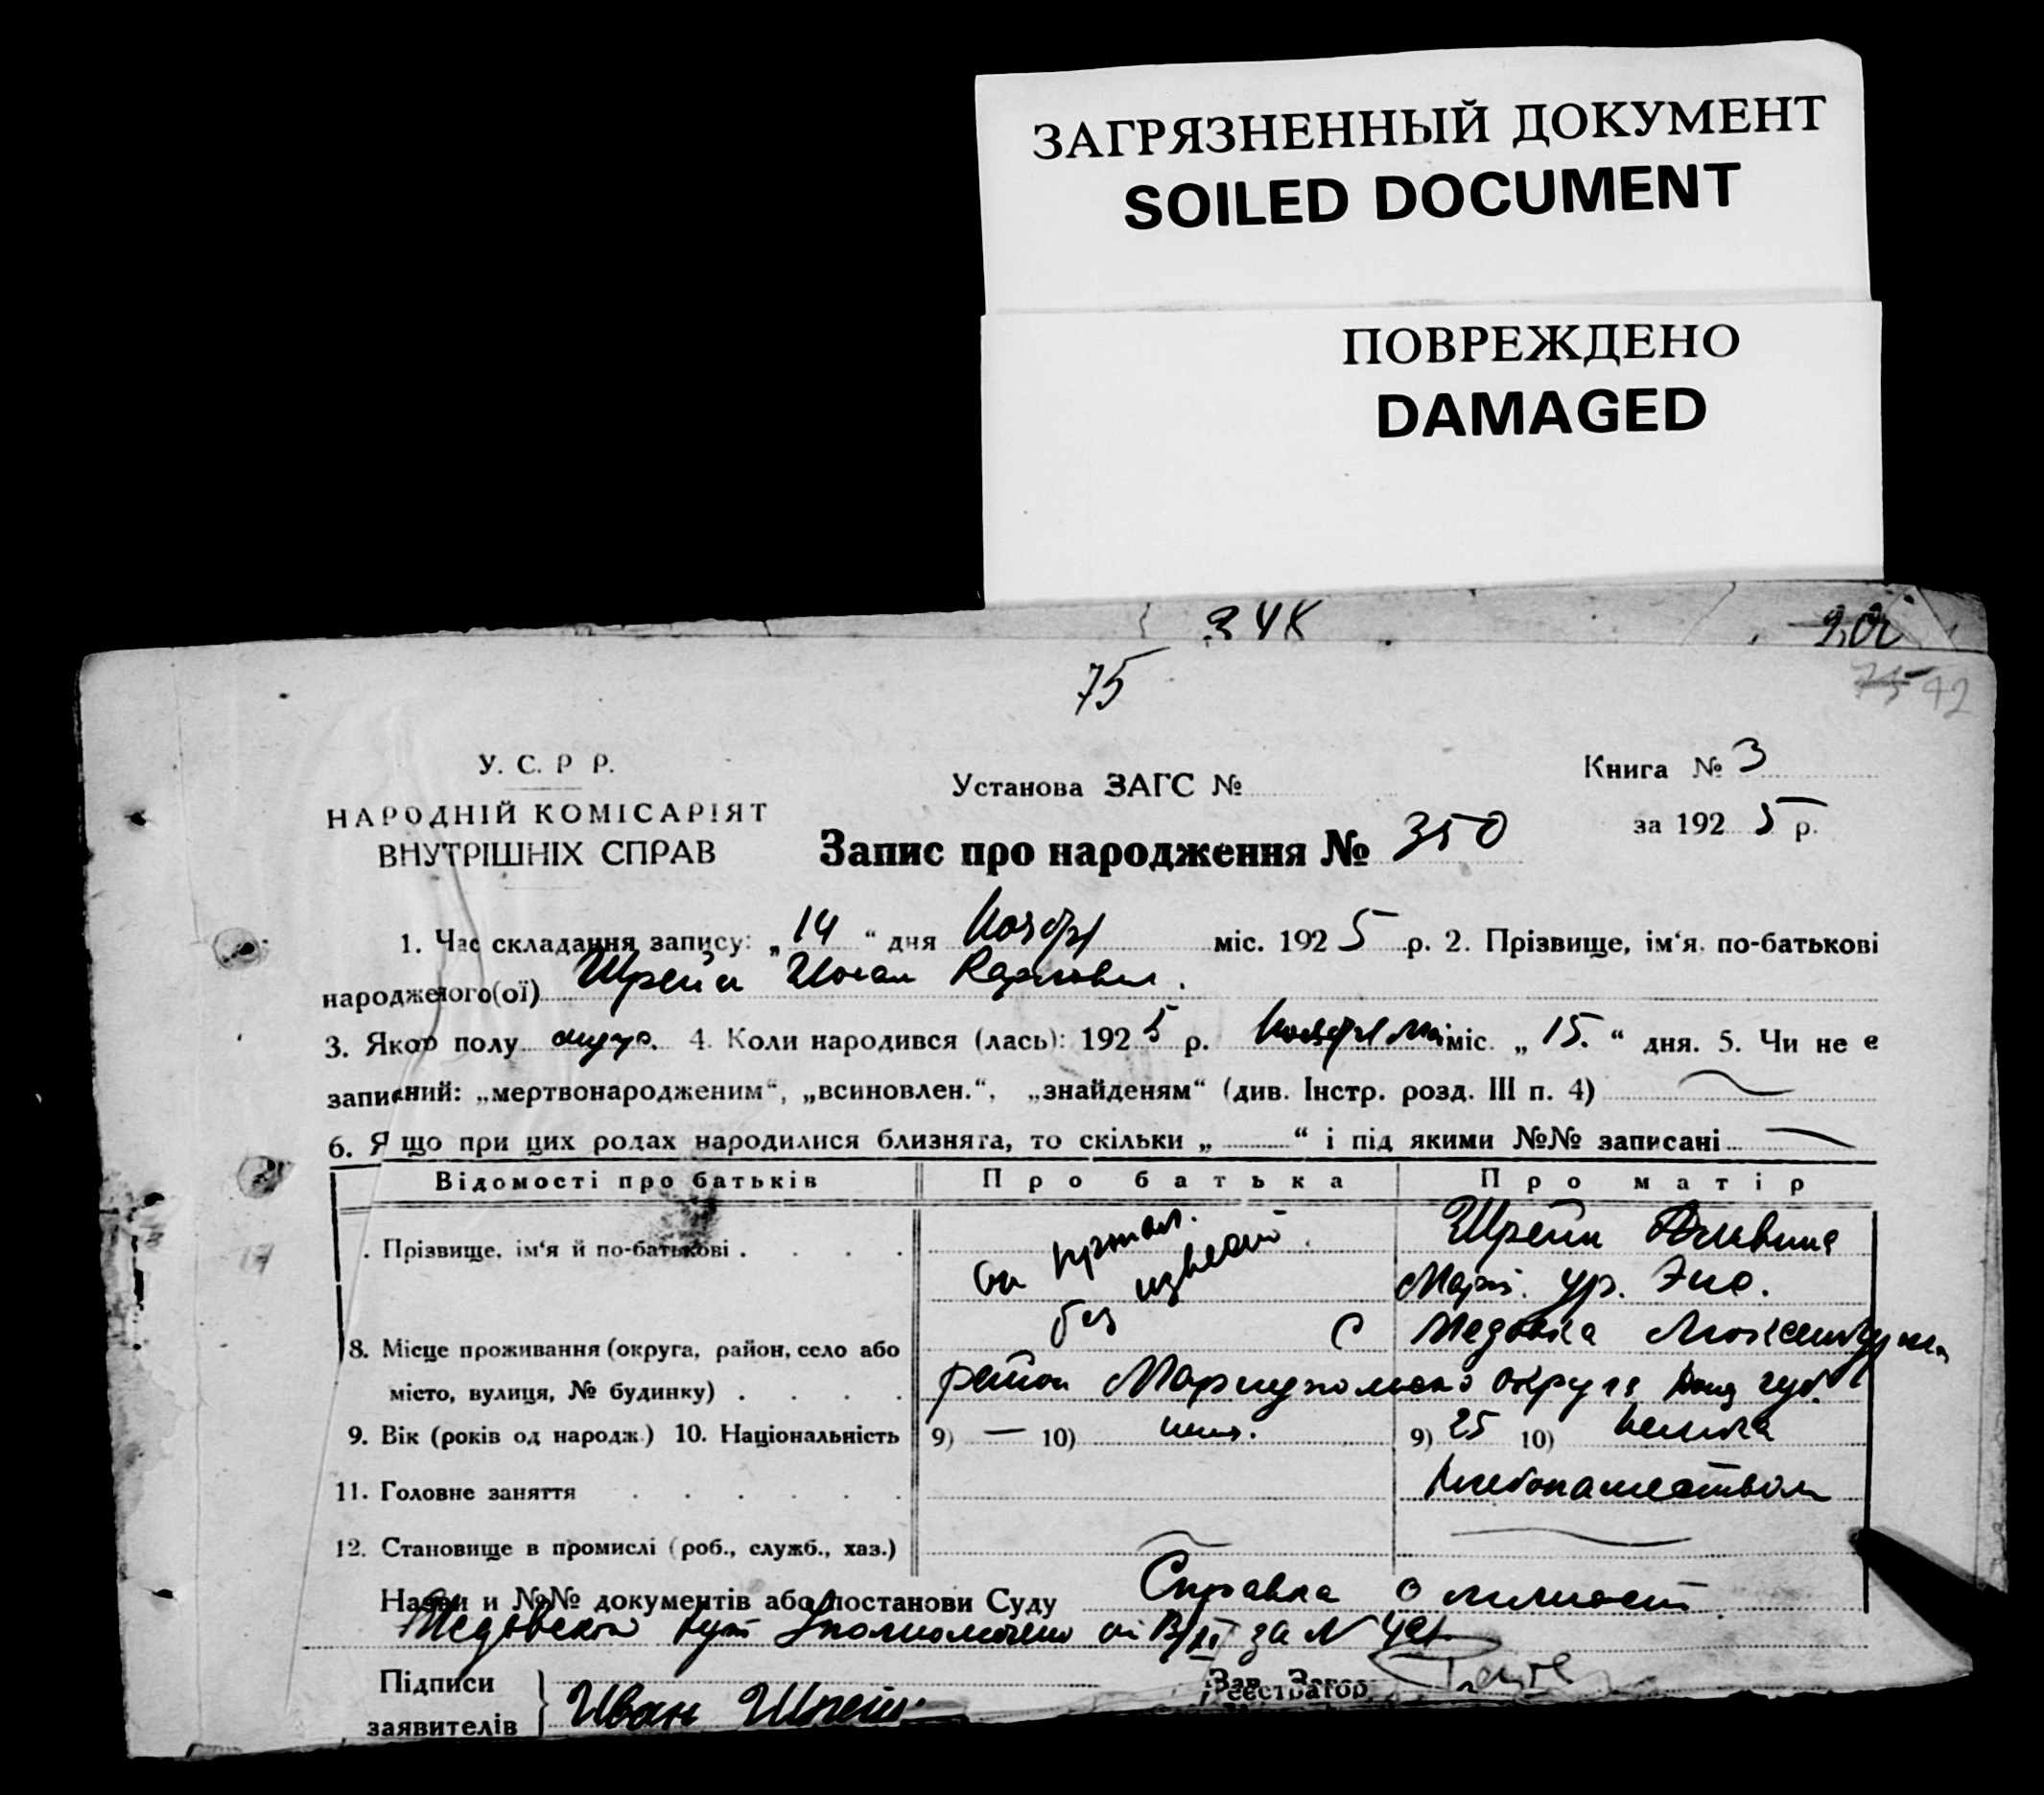 ЗАГРЯЗНЕННЫЙ ДОКУМЕНТ
SOILED DOCUMENT
ПОВРЕЖДЕНО
DAMAGED
75
75 92
У. С. Р Р.
НАРОДНІЙ КОМІСАРІЯТ
ВНУТРІШНІХ СПРАВ
Установа ЗАГС №
Книга № 3
за 192 5 р.
Запис про народження № 350
1. Час складання запису: „ 14 “ дня Ноября міс. 192 5 р. 2. Прізвище, ім‘я, по-батькові
народженого(ої) Шрейн Иоган Карлович.
3. Якого полу муж. 4. Коли народився (лась): 192 5 р. Ноября міс. „ 15. “ дня. 5. Чи не є
записаний: „мертвонародженим“, „всиновлен.“, „знайденям“ (див. Інстр. розд. III п. 4)
6. Якщо при цих родах народилися близнята, то скільки „ “ і під якими №№ записані
Відомості про батьків Про батька Про матір
. Прізвище, ім‘я й по-батькові . . . . без Шрейн
Март. ур.
8. Місце проживання (округа, район, село або С
місто, вулиця, № будинку) . . . . район Мариупольского округа Дон губ
9. Вік (років од народж.) 10. Національність 9) — 10) нем. 9) 25 10) немка
11. Головне заняття . . . . . . хлебопашеством
12. Становище в промислі (роб., служб., хаз.)
Назви и №№ документів або постанови Суду Справка о личност
за N
Підписи
заявителів } Иван Шрейн
Зав. Загсу
Реєстратор